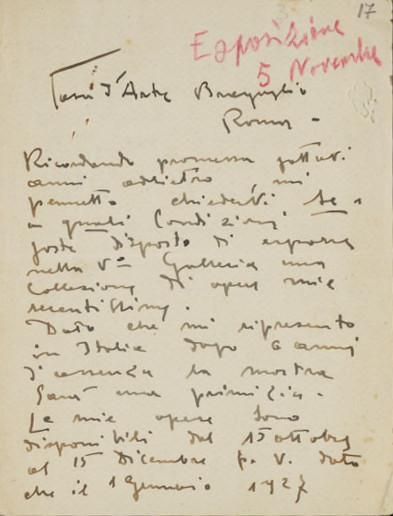 17
Esposizione
5 Novembre
Casa d'Arte Bragaglia
Roma -
Ricordando promessa fattavi
anni addietro, mi
permetto chiedervi se e
a quali condizioni
foste disposto di esporre
nella Va Galleria una
collezione di opere mie
recentissime.
Dato che mi ripresento
in Italia dopo 6 anni
d'assenza la mostra
sarà una primizia.
Le mie opere sono
disponibili dal 15 ottobre
al 15 Dicembre p. v. dato
che il 1 Gennaio 1927